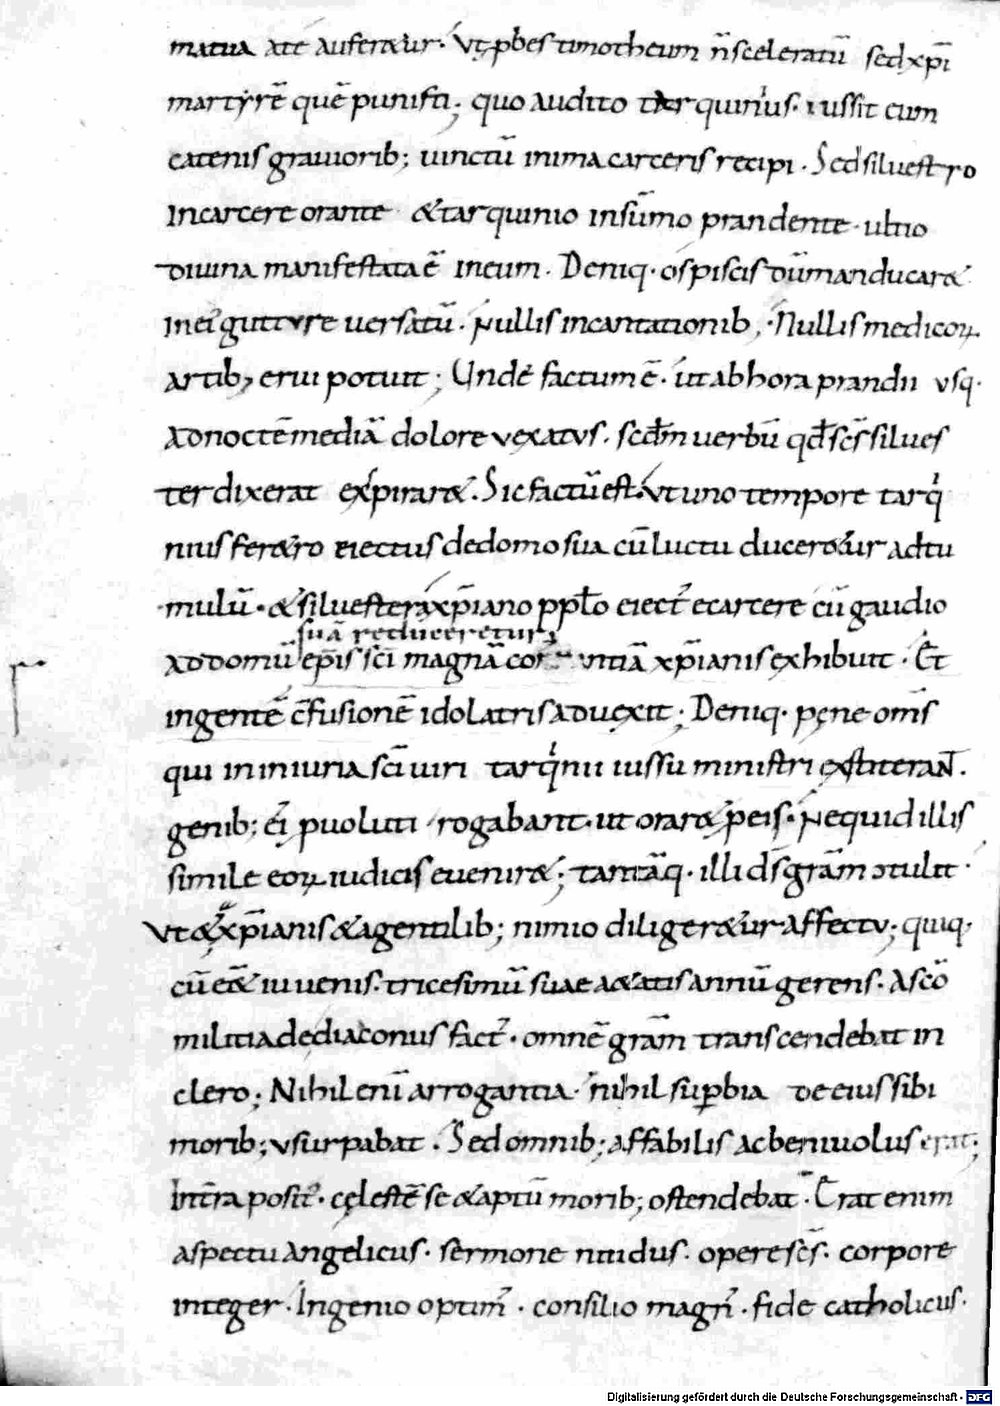 matua ate aufer&ur. Ut ꝓbes timotheum n̄ sceleratū sed xp̄i
martyrē quē punisti; quo audito tarquinius. iussit cum
catenis grauiorib; uinctū in ima carceris recipi. Sed siluestro
In carcere orante &tarquinio in sūmo prandente. ultio
diuina manifestata ē in eum. Deniq. os piscis dū manducar&
In ei gutture uersatū. Nullis incantationib; Nullis medicoꝝ
artib; erui potuit; Unde factum ē. ut ab hora prandii usq.
Ad noctē mediā dolore uexatus. scd̄m uerbū qd̄ scs̄ silues
ter dixerat expirar&. Sic factū est. Ut uno tempore tarqi
nius feretro eiectus de domo sua cū luctu ducer&ur ad tu
mulū. & siluester a xp̄iano pplo eiect᾽ e carcere cū gaudio
suā reduceretur;
Ad domū epis sci magnā xp̄ianis exhibuit. Et
ingentē c̄fusionē idolatris aduexit; Deniq. pęne om̄s
qui in iniuria sc̄i uiri tarqinii iussu ministri extiteraNT.
genib; ei puoluti rogabant. ut orar& p eis. Nequid illis
simile eoꝝ iudicis euenir&; tantāq. illi ds̄ grām ɔtulit.
Ut & xp̄ianis & agentilib; nimio diliger&ur affectu; quiq.
cū e&̄ iuuenis. tricesimū suae a&atis annū gerens. Ascō
militia dediaconus fact᾽. omnē grām transcendebat in
clero; Nihil eni arrogantia. nihil suꝑbia de eius sibi
morib; usurpabat. Sed omnib; affabilis ac beniuolus erat;
Intra posit᾽. cęlestē se & aptū morib; ostendebat. Erat enim
aspectu Angelicus. sermone nitidus. opere scs̄. corpore
integer. Ingenio optim᾽. consilio magn᾽. fide catholicus.
Digitalisierung gefördert durch die Deutsche Forschungsgemeinschaft - DFG